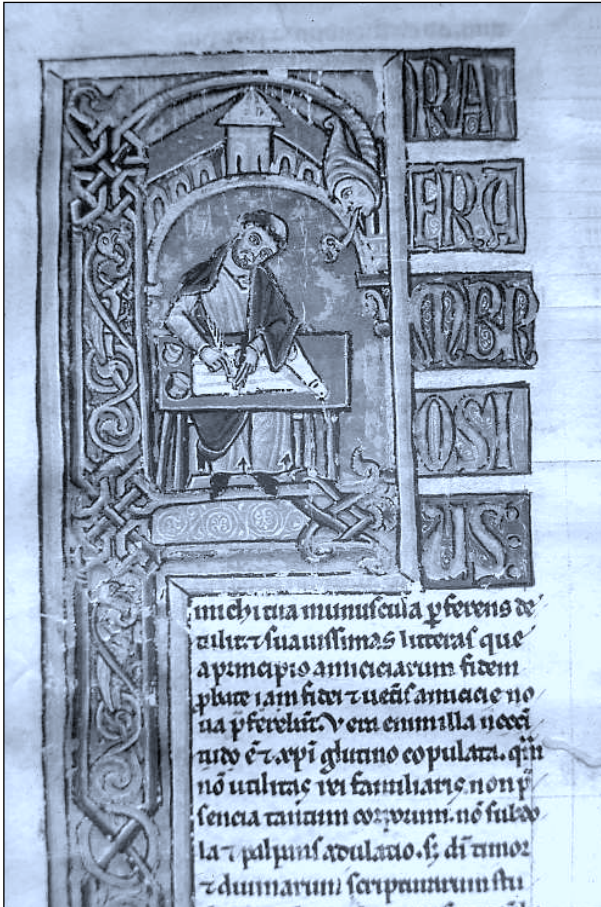 F
RA
ERA
MBR
OSI
US:
michi tua munuscula ꝑferens de
tulit ⁊ suauissimas litteras que
a principio amiciciarum fidem
ꝓbate iam fidei ⁊ ueteris amicicie no
ua p̄ferebant. Vera enim illa necessi
tudo ē ⁊ xp̄i glutino copulata. quā
nō utilitas rei familiaris. non p̄
sencia tantum corporum. nō subdo
la ⁊ palpans adulatio. sꝫ di timor
⁊ diuinarum scripturarum stu